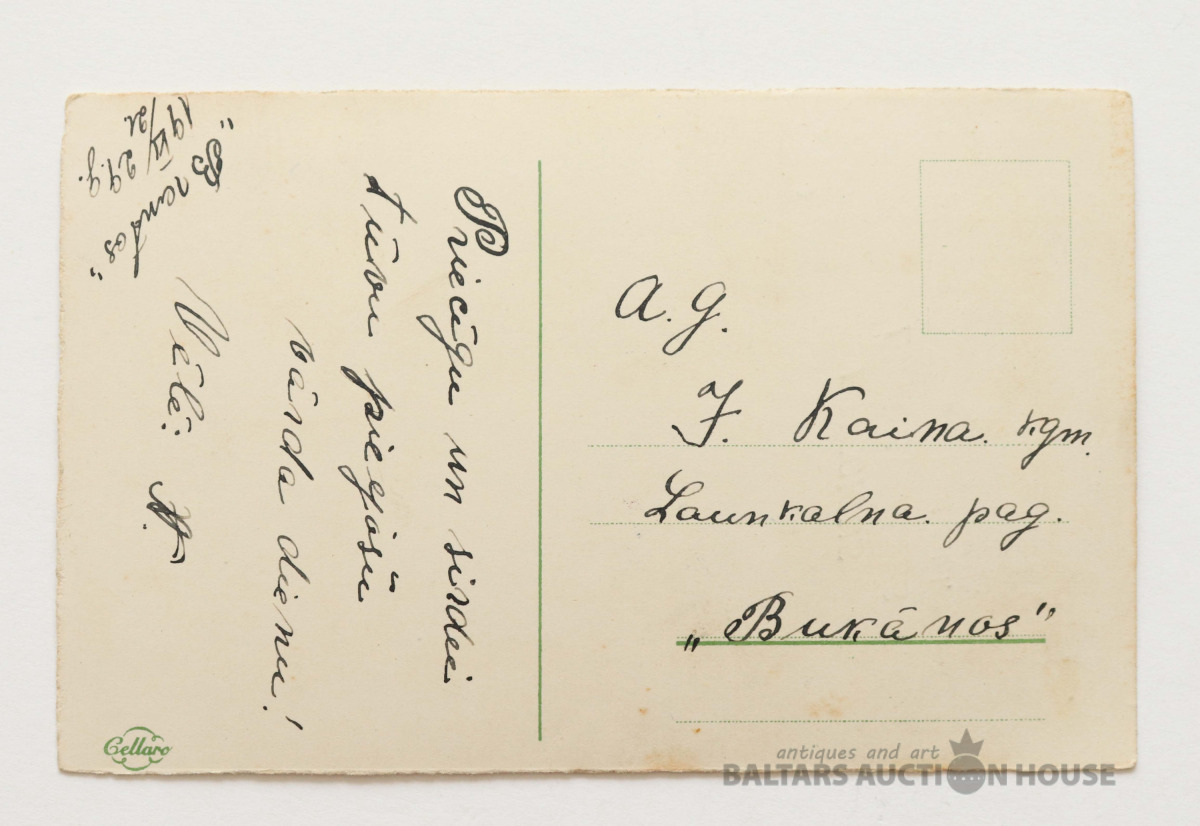 Priecīgu un sirdei
tuvu pieejošu
vārda dienu!
Vēlē:
A. g.
J. Kaina. kgm.
Launkalna. pag.
„Bukānos"
Cellaro
antiques and art
BALTARS AUCTION HOUSE